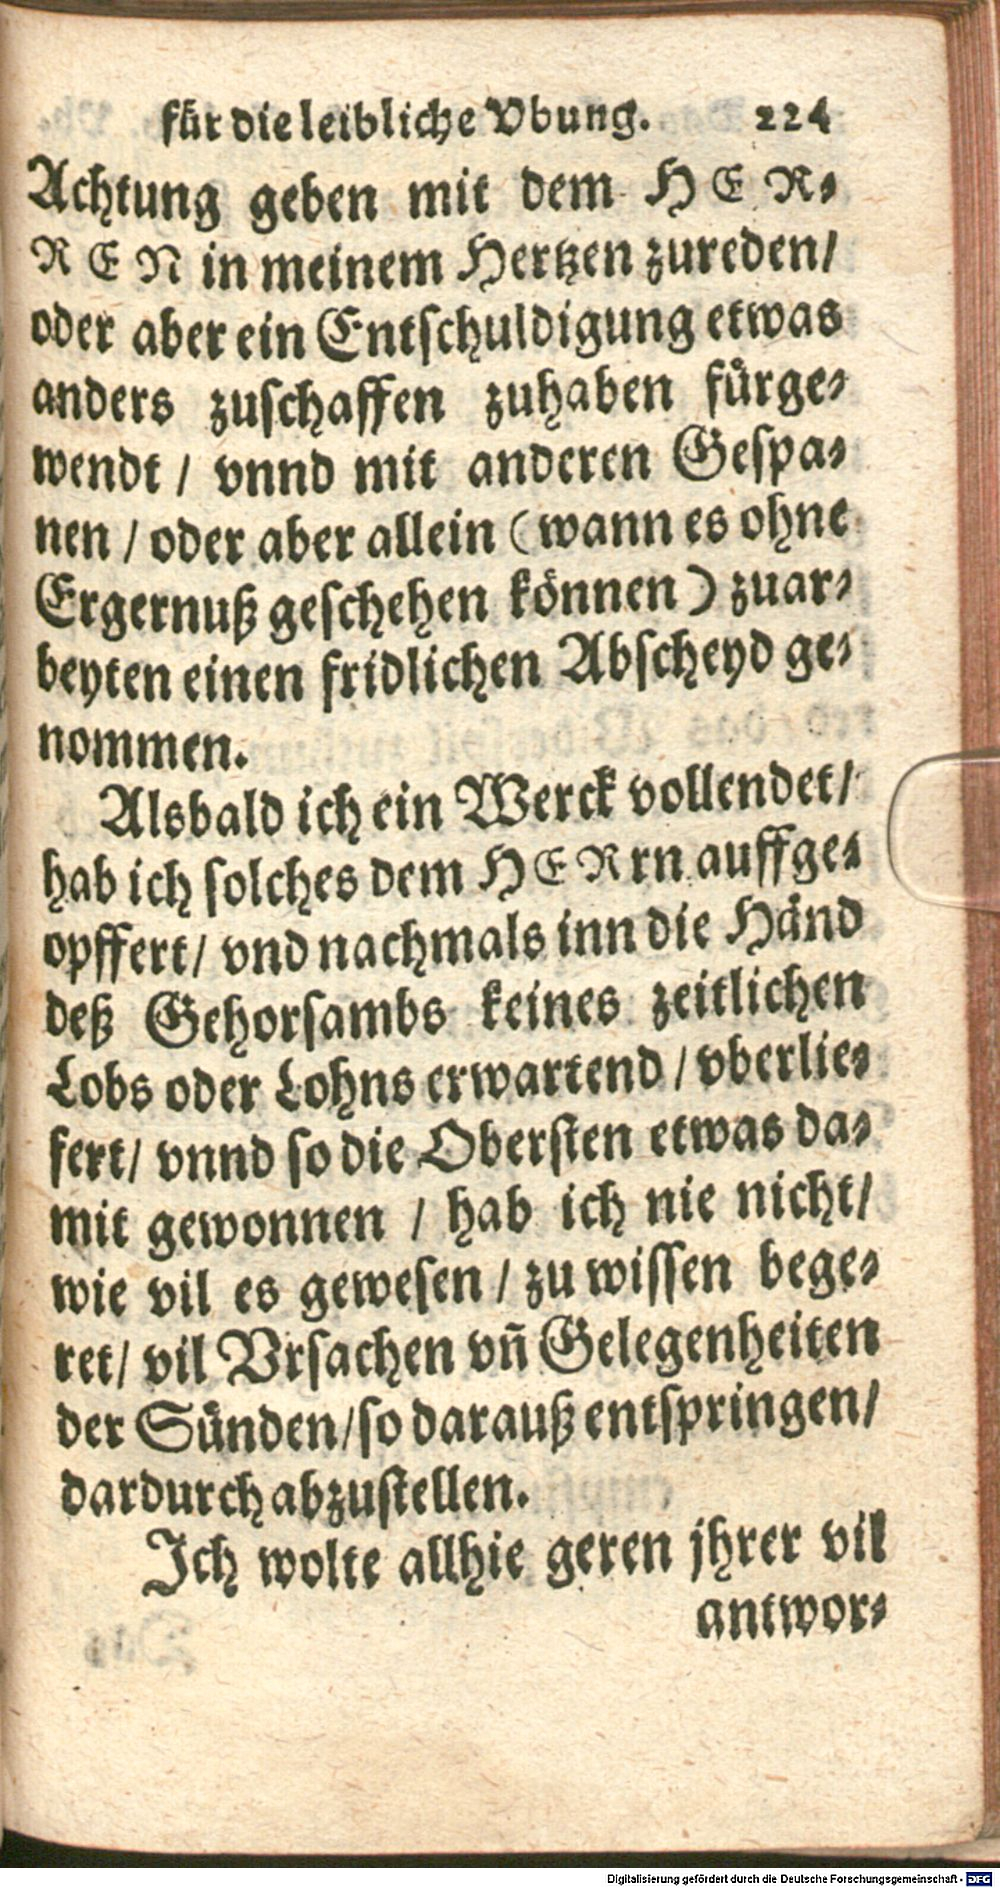 für die leibliche Vbung. 224
Achtung geben mit dem HER⸗
REN in meinem Hertzen zureden/
oder aber ein Entschuldigung etwas
anders zuschaffen zuhaben fürge⸗
wendt / vnnd mit anderen Gespa⸗
nen / oder aber allein (wann es ohne
Ergernuß geschehen können) zuar⸗
beyten einen fridlichen Abscheyd ge⸗
nommen.
Alsbald ich ein Werck vollendet/
hab ich solches dem HERrn auffge⸗
opffert/ vnd nachmals inn die Händ
deß Gehorsambs keines zeitlichen
Lobs oder Lohns erwartend / vberlie⸗
fert/ vnnd so die Obersten etwas da⸗
mit gewonnen / hab ich nie nicht/
wie vil es gewesen / zu wissen bege⸗
ret/ vil Vrsachen vñ Gelegenheiten
der Sünden/ so darauß entspringen/
dardurch abzustellen.
Ich wolte allhie geren jhrer vil
antwor⸗
Digitalisierung gefördert durch die Deutsche Forschungsgemeinschaft - DFG